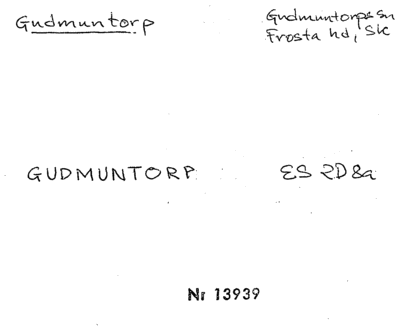 Gudmuntorp
Gudmuntorps sn
Frosta hd, Sk
GUDMUNTORP
ES 2D8a
Nr 13939